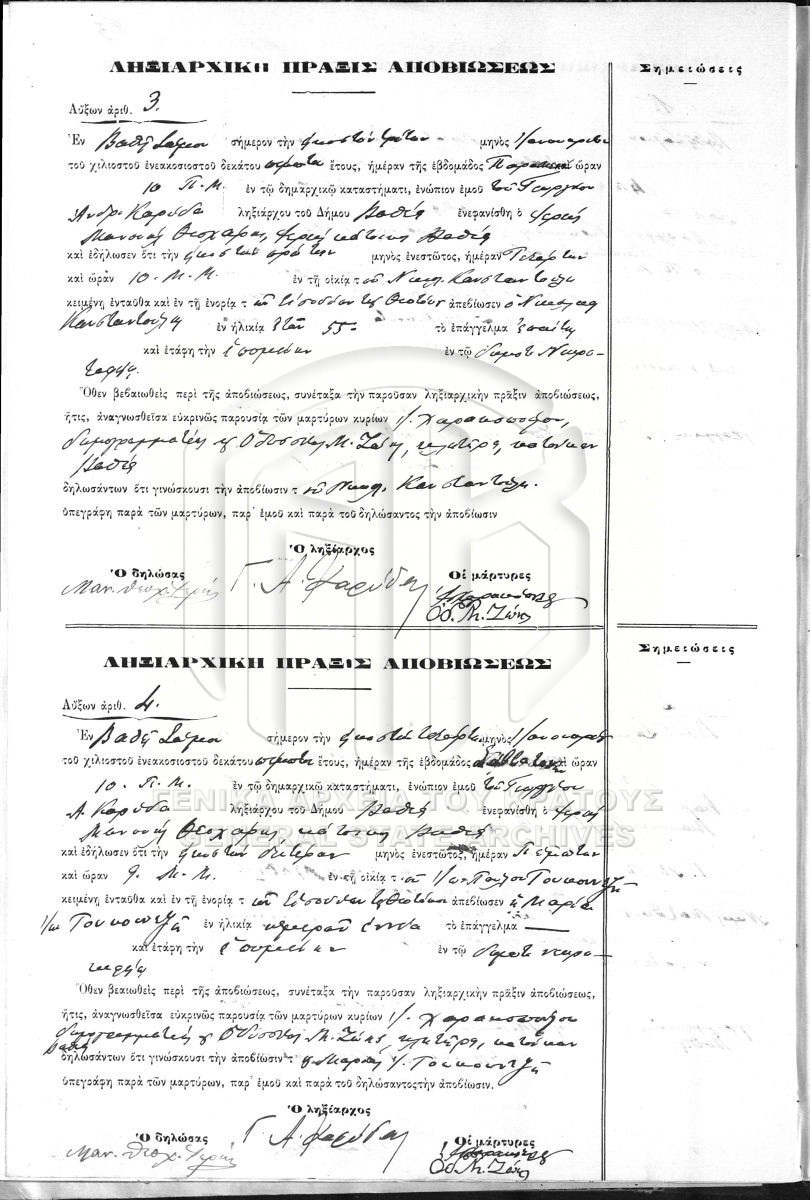 ΛΗΞΙΑΡΧΙΚΗ ΠΡΑΞΙΣ ΑΠΟΒΙΩΣΕΩΣ
Σημειώσεις
Αὔξων ἀριθ. 3.
Ἐν Βαθεῖ Σάμου σήμερον τὴν εἰκοστὴν τρίτην μηνὸς Ἰανουαρίου
τοῦ χιλιοστοῦ ἐνεακοσιοστοῦ δεκάτου πρώτου ἔτους, ἡμέραν τῆς ἑβδομάδος καὶ ὥραν
10 Π.Μ. ἐν τῷ δημαρχικῷ καταστήματι, ἐνώπιον ἐμοῦ τοῦ Γεωργίου
Ἀνδρ. Καρύδα ληξιάρχου τοῦ Δήμου Βαθέος ἐνεφανίσθη ὁ ἱερεὺς
Μανουὴλ Θεοχάρης, ἱερεὺς κάτοικος Βαθέος
καὶ ἐδήλωσεν ὅτι τὴν εἰκοστὴν πρώτην μηνὸς ἐνεστῶτος, ἡμέραν Τετάρτην
καὶ ὥραν 10 Μ.Μ. ἐν τῇ οἰκίᾳ τοῦ Νικολ. Κωνσταντούλη
κειμένῃ ἐνταῦθα καὶ ἐν τῇ ἐνορίᾳ τῶν Εἰσοδίων τῆς Θεοτόκου ἀπεβίωσεν ὁ Νικόλαος
Κωνσταντούλης ἐν ἡλικίᾳ ἐτῶν 55 τὸ ἐπάγγελμα
καὶ ἐτάφη τὴν ἑπομένην ἐν τῷ δημοτ. Νεκρο-
ταφείῳ.
Ὅθεν βεβαιωθεὶς περὶ τῆς ἀποβιώσεως, συνέταξα τὴν παροῦσαν ληξιαρχικὴν πρᾶξιν ἀποβιώσεως,
ἥτις, ἀναγνωσθεῖσα εὐκρινῶς παρουσίᾳ τῶν μαρτύρων κυρίων Ἰ. Χαρακοπούλου,
δημογραμματέως καὶ Ὀδυσσέως Μ. Ζώη, κλητῆρος, κατοίκων
Βαθέος
δηλωσάντων ὅτι γινώσκουσι τὴν ἀποβίωσιν τοῦ Νικολ. Κωνσταντούλη.
ὑπεγράφη παρὰ τῶν μαρτύρων, παρ' ἐμοῦ καὶ παρὰ τοῦ δηλώσαντος τὴν ἀποβίωσιν
Ὁ ληξίαρχος
Ὁ δηλώσας
Οἱ μάρτυρες
Μαν. Θεοχ. ἱερεύς
Γ. Α. Καρύδας
Ὀδ. Μ. Ζώης
ΛΗΞΙΑΡΧΙΚΗ ΠΡΑΞΙΣ ΑΠΟΒΙΩΣΕΩΣ
Σημειώσεις
Αὔξων ἀριθ. 4.
Ἐν Βαθεῖ Σάμου σήμερον τὴν εἰκοστὴν τετάρτην μηνὸς Ἰανουαρίου
τοῦ χιλιοστοῦ ἐνεακοσιοστοῦ δεκάτου πρώτου ἔτους, ἡμέραν τῆς ἑβδομάδος Σάββατον καὶ ὥραν
10 Π.Μ. ἐν τῷ δημαρχικῷ καταστήματι, ἐνώπιον ἐμοῦ τοῦ Γεωργίου
Α. Καρύδα ληξιάρχου τοῦ Δήμου Βαθέος ἐνεφανίσθη ὁ ἱερεὺς
Μανουὴλ Θεοχάρης κάτοικος Βαθέος
καὶ ἐδήλωσεν ὅτι τὴν εἰκοστὴν δευτέραν μηνὸς ἐνεστῶτος, ἡμέραν Πέμπτην
καὶ ὥραν 9 Μ.Μ. ἐν τῇ οἰκίᾳ τοῦ
κειμένῃ ἐνταῦθα καὶ ἐν τῇ ἐνορίᾳ τῶν Εἰσοδίων τῆς Θεοτόκου ἀπεβίωσεν ἡ Μαρία
ἐν ἡλικίᾳ ἡμερῶν ἐννέα τὸ ἐπάγγελμα —
καὶ ἐτάφη τὴν ἑπομένην ἐν τῷ δημοτ. νεκρο-
ταφείῳ
Ὅθεν βεαιωθεὶς περὶ τῆς ἀποβιώσεως, συνέταξα τὴν παροῦσαν ληξιαρχικὴν πρᾶξιν ἀποβιώσεως,
ἥτις, ἀναγνωσθεῖσα εὐκρινῶς παρουσίᾳ τῶν μαρτύρων κυρίων Ἰ. Χαρακοπούλου
δημογραμματέως καὶ Ὀδυσσέως Μ. Ζώη, κλητῆρος, κατοίκων
Βαθέος
δηλωσάντων ὅτι γινώσκουσι τὴν ἀποβίωσιν τῆς Μαρίας Ἰ.
ὑπεγράφη παρὰ τῶν μαρτύρων, παρ' ἐμοῦ καὶ παρὰ τοῦ δηλώσαντος τὴν ἀποβίωσιν.
Ὁ ληξίαρχος
Ὁ δηλώσας
Οἱ μάρτυρες
Μαν. Θεοχ. ἱερεύς
Γ. Α. Καρύδας
Ὀδ. Μ. Ζώης
ΓΕΝΙΚΑ ΑΡΧΕΙΑ ΤΟΥ ΚΡΑΤΟΥΣ
GENERAL STATE ARCHIVES